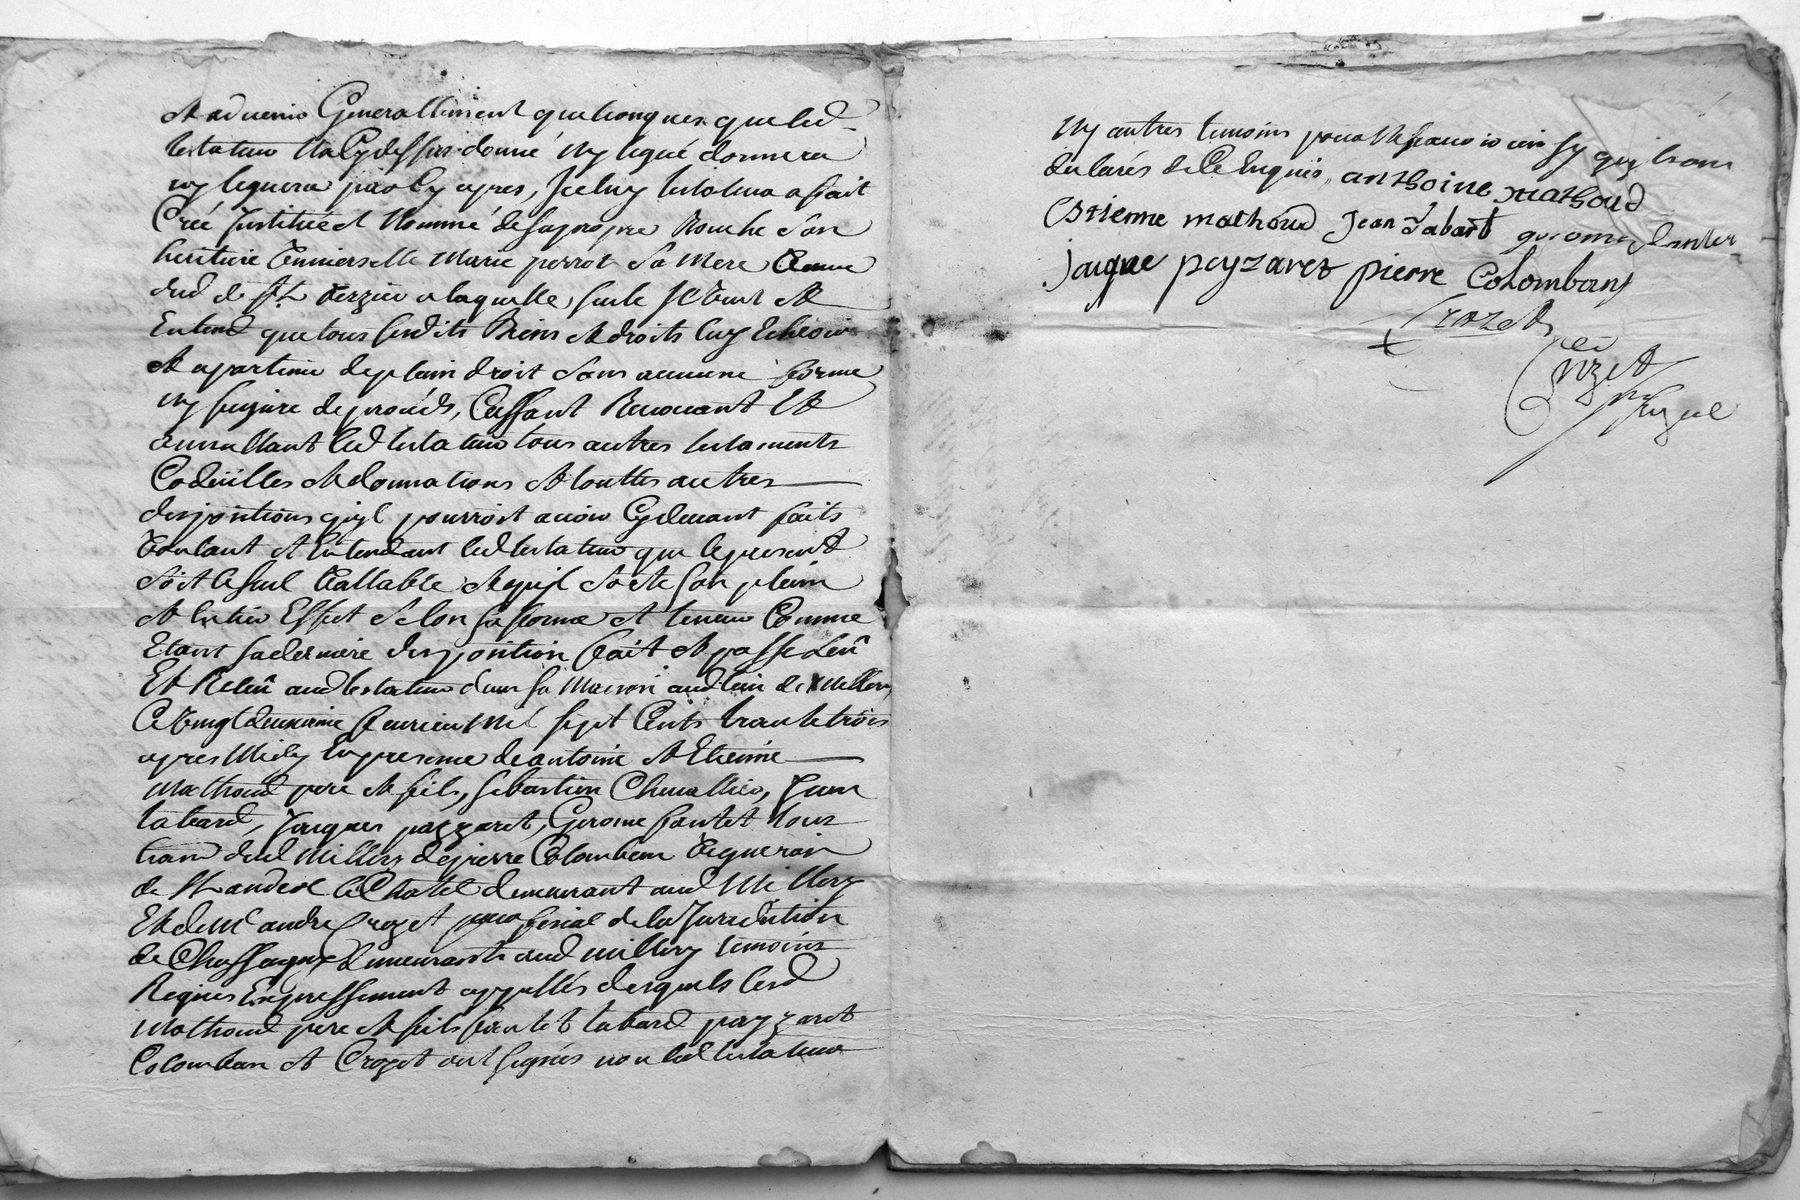 et advenir Generallement quelconques que led
testateur na Cydessus donné ny legué donnera
ny leguera par Cy apres, Iceluy testateur a fait
Créé Institué et Nommé de sa propre Bouche son
heritiere Universelle Marie perrot sa Mere veuve
dud de st verzieu a laquelle, seule Il Veut Et
Entend que tous sesdits Biens et droits luy Echeoir
et apartenir de plain droit sans aucune forme
ny figure de procés, Cassant Revocant Et
annullant led testateur tous autres testaments
Codicilles et donnations et touttes autres
dispositions qu'jl pourroit avoir Cydevant faits
Voulant et Entendant led testateur que le present
soit le seul Vallable et qujl sorte son plain
et Entier Effet selon sa forme et teneur Comme
Etant sa derniere disposition fait et passé Leû
Et Releû aud testateur dans sa Maison aud lieu de Millery
Ce Vingt deuxieme fevrier Mil sept Cents trante trois
apres Midy En presence de antoine et Etienne
Mathoud pere et fils, sebastien Chevallier, Jean
tabard, Jacques pazzaret, Gerome fontet tous
dud Millery de pierre Colomban Vigneron
de st andeol le Chatel demeurant aud Millery
Et de Me andre Crozet fiscal de la Juridiction
de Chassagne demeurants aud millery temoins
Requis Expressement appellés desquels lesd
Mathoud pere et fils fontet tabard payzaret
Colomban et Crozet ont signés non led testateur
ny autres temoins pour ne scavoir ainsy qu'jls ont
declarés de Ce Enquis, anthoine mathoud
Estienne mathoud Jean Tabart
Jaque peyzaret pierre Colomban
Crozet
Crozet